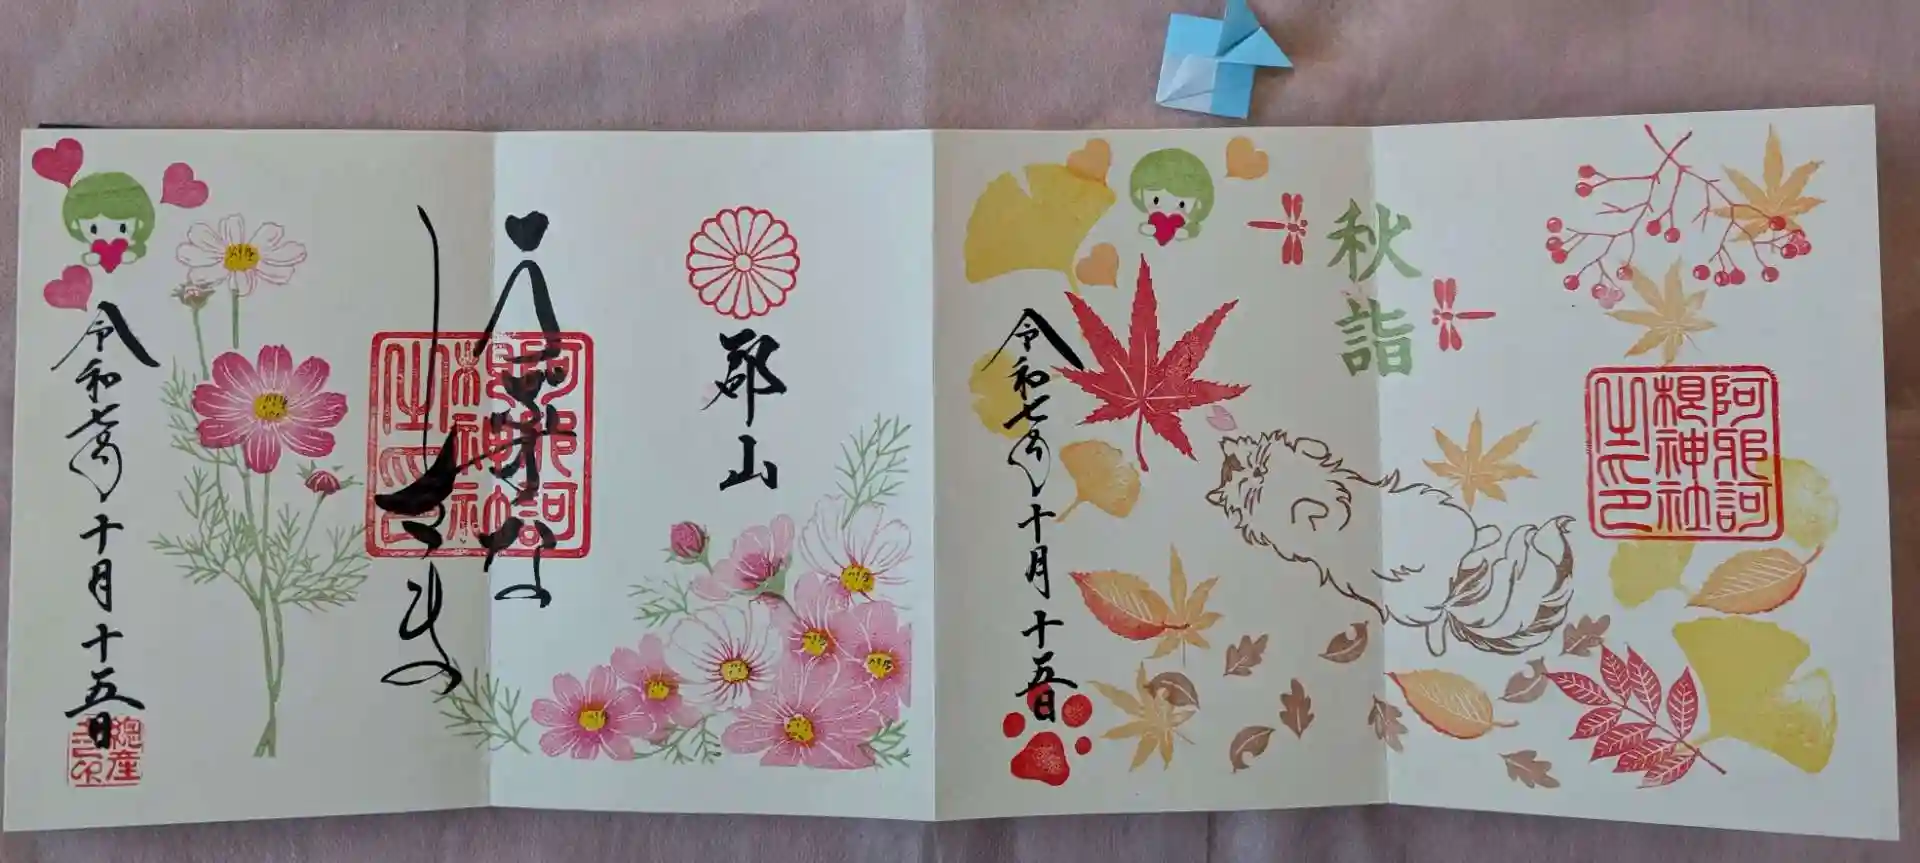 阿邪訶
根神社
之印
秋詣
令和七年十月十五日
郡山
阿邪訶
根神社
之印
令和七年十月十五日